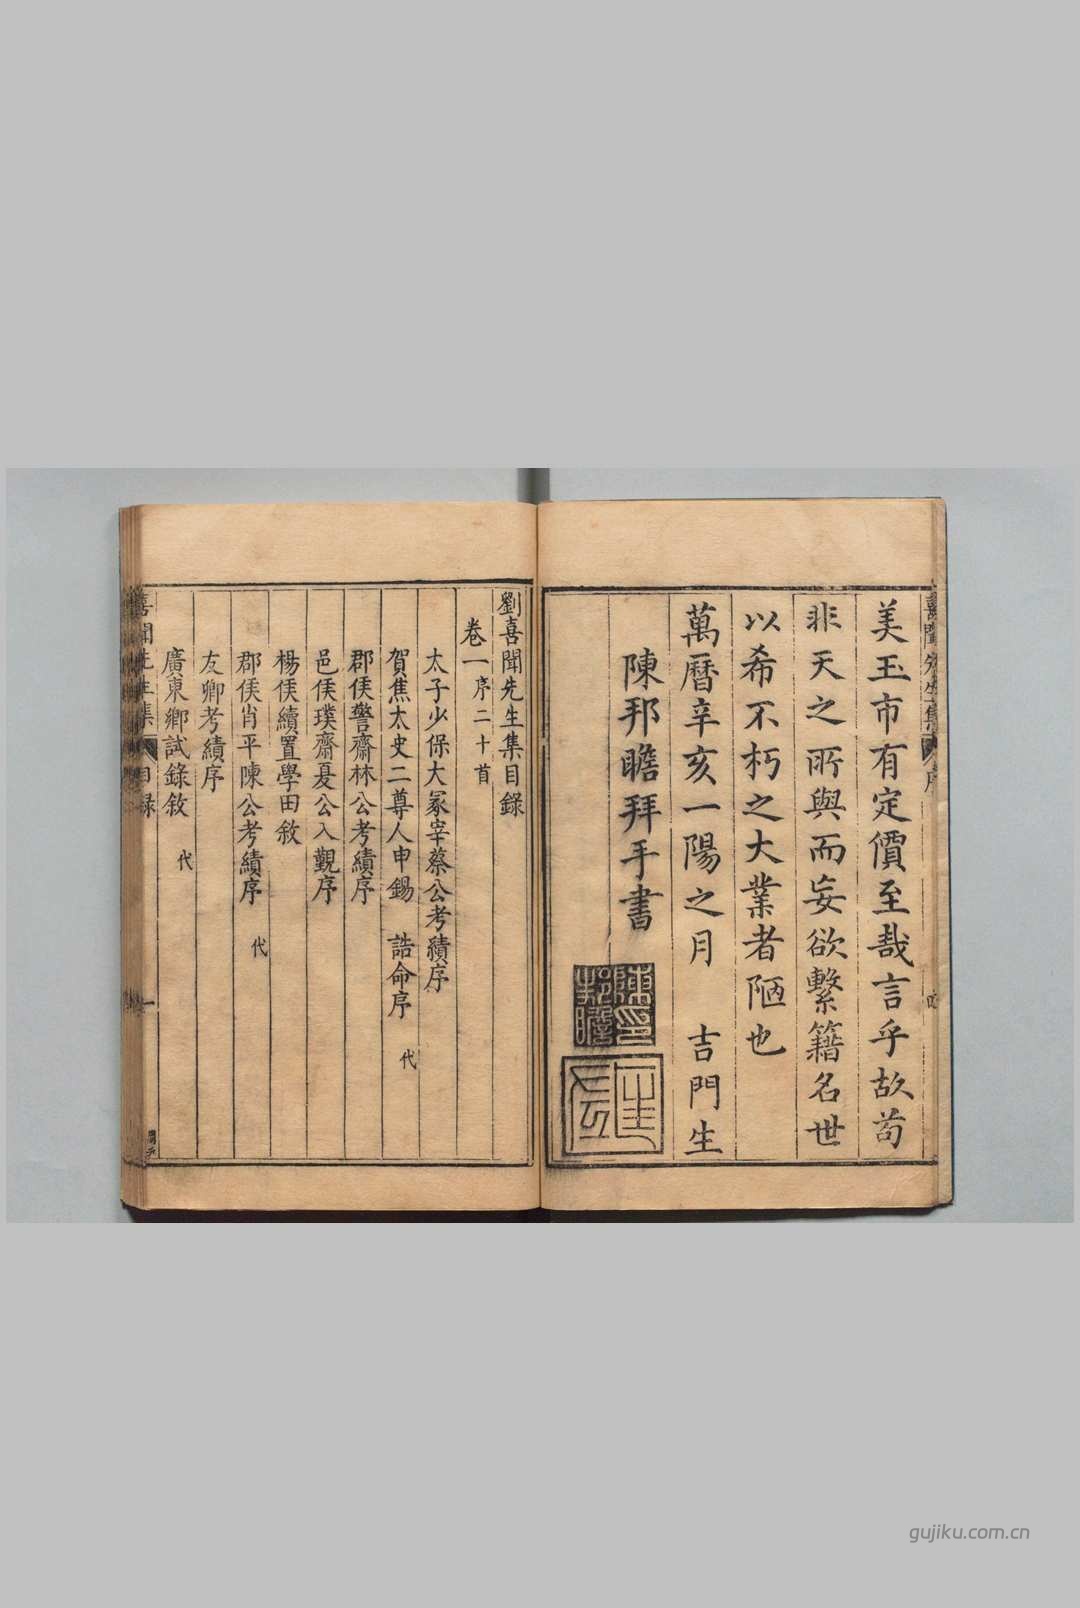 美玉市有定價至哉言乎故苟
非天之所與而妄欲繫籍名世
以希不朽之大業者陋也
萬曆辛亥一陽之月　吉門生
陳邦瞻拜手書
劉喜聞先生集目錄
卷一序二十首
太子少保大冢宰蔡公考績序
賀焦太史二尊人申錫　誥命序　代
郡侯警齋林公考績序
邑侯璞齋夏公入覲序
楊侯續置學田敘
郡侯肖平陳公考績序　代
友卿考績序
廣東鄉試錄敘　代
喜聞先生集　目錄　一
gujiku.com.cn